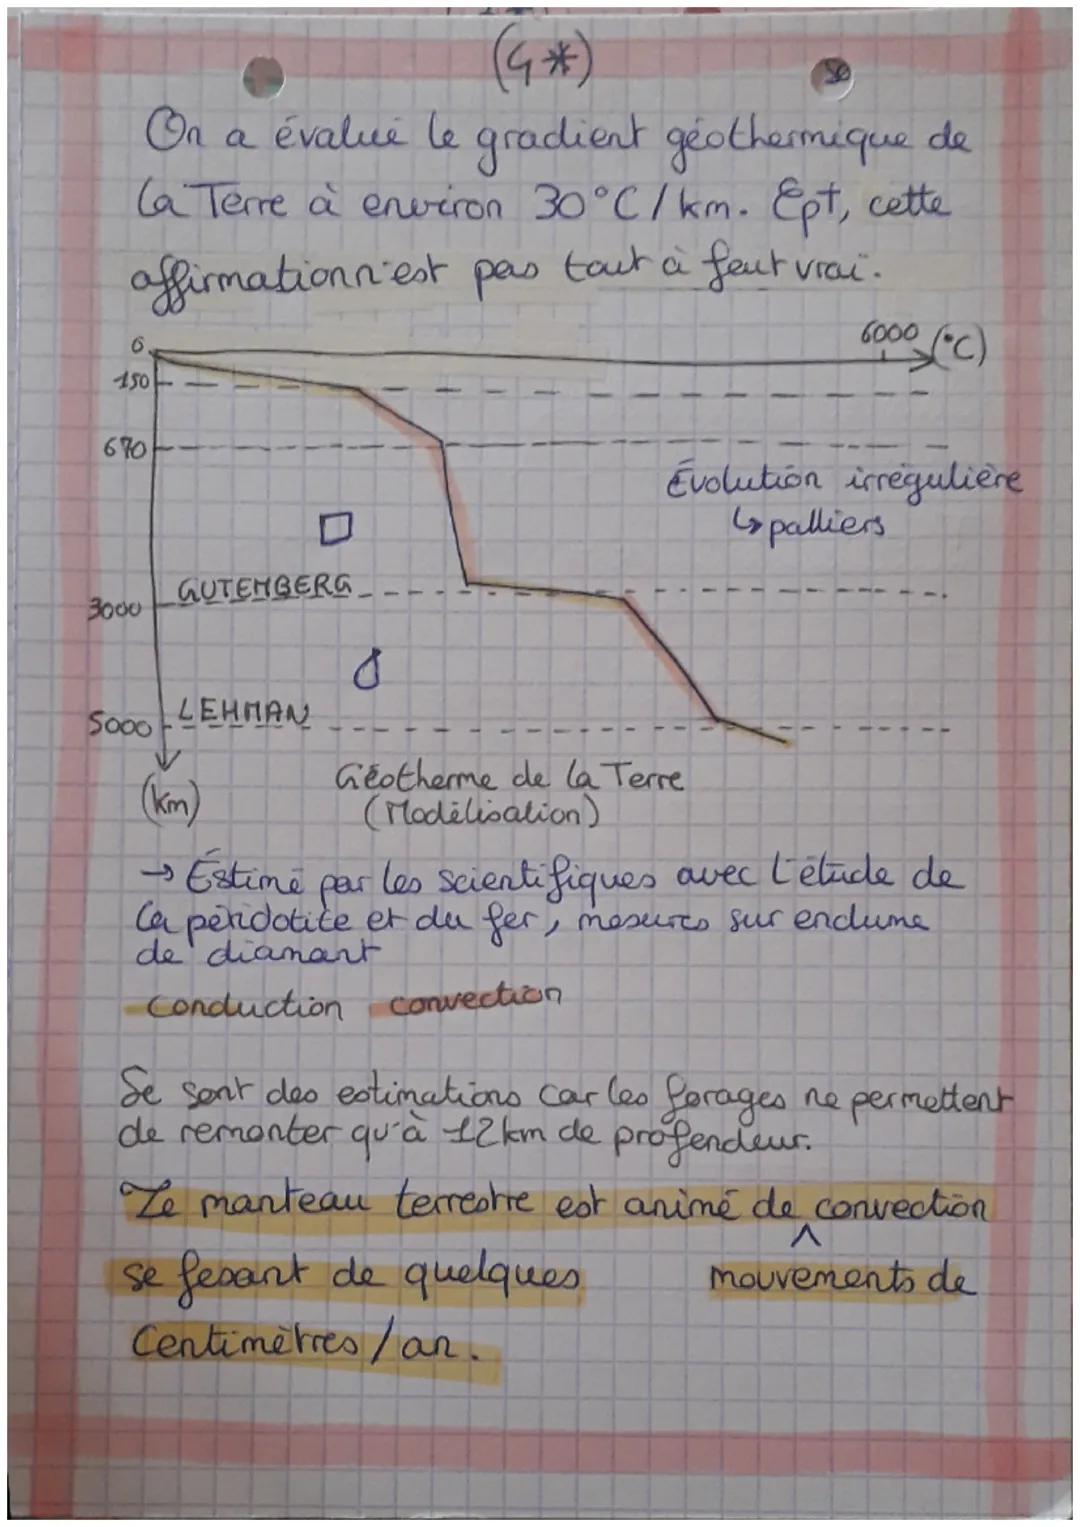 (4*)
On a évalué le gradient géothermique de
la Terre à environ 30°C/km. Cpt, cette
affirmation n'est pas tout à feut vrai.
6000 (°C)
0
150
670
Évolution irrégulière
↳ palliers
GUTENBERG
3000
LEHMAN
5000
(km)
Géotherme de la Terre
(Modélisation)
→ Estimé par les scientifiques avec l'étude de
la péridotite et du fer, mesures sur enclume
de diamant
conduction convection
Se sont des estimations car les forages ne permettent
de remonter qu'à 12km de profendeur.
Le manteau terrestre est animé de convection
^
se fesant de quelques mouvements de
Centimètres/an.